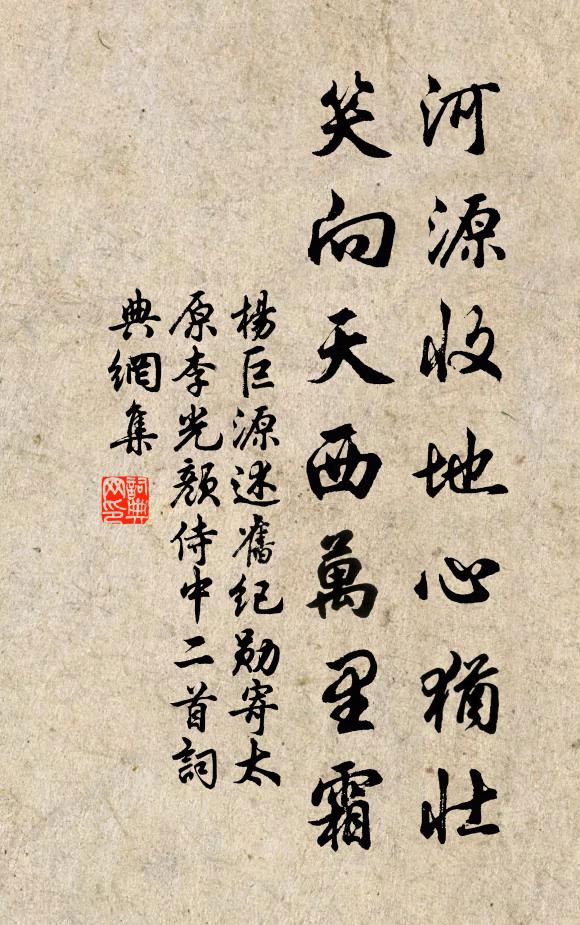 河源收地心猶壯
笑向天西萬里霜
楊巨源述舊紀勛寄太
原李光顏侍中二首詞
典網集
詞典
网印